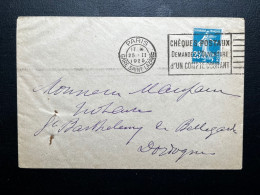 PARIS
25-II
CHÈQUES POSTAUX
DEMANDEZ L'OUVERTURE
D'UN COMPTE COURANT
Monsieur
Notaire
St Barthélemy de Bellegarde
Dordogne